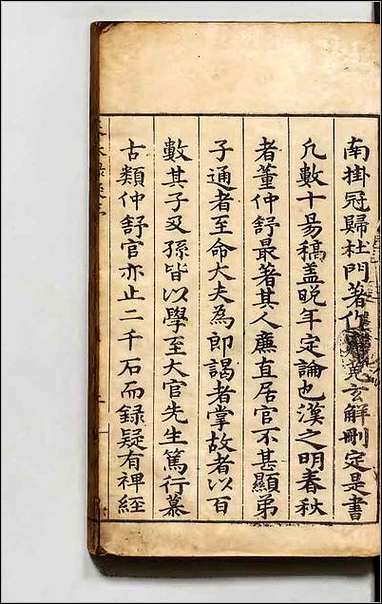 南掛冠歸杜門著作 兎玄解刪定是書
凢數十昜稿盖晚年定論也漢之明春秋
者董仲舒最著其人廉直居官不甚顯弟
子通者至命大夫為郎謁者掌故者以百
數其子及孫皆以學至大官先生篤行慕
古類仲舒官亦止二千石而錄疑有裨經